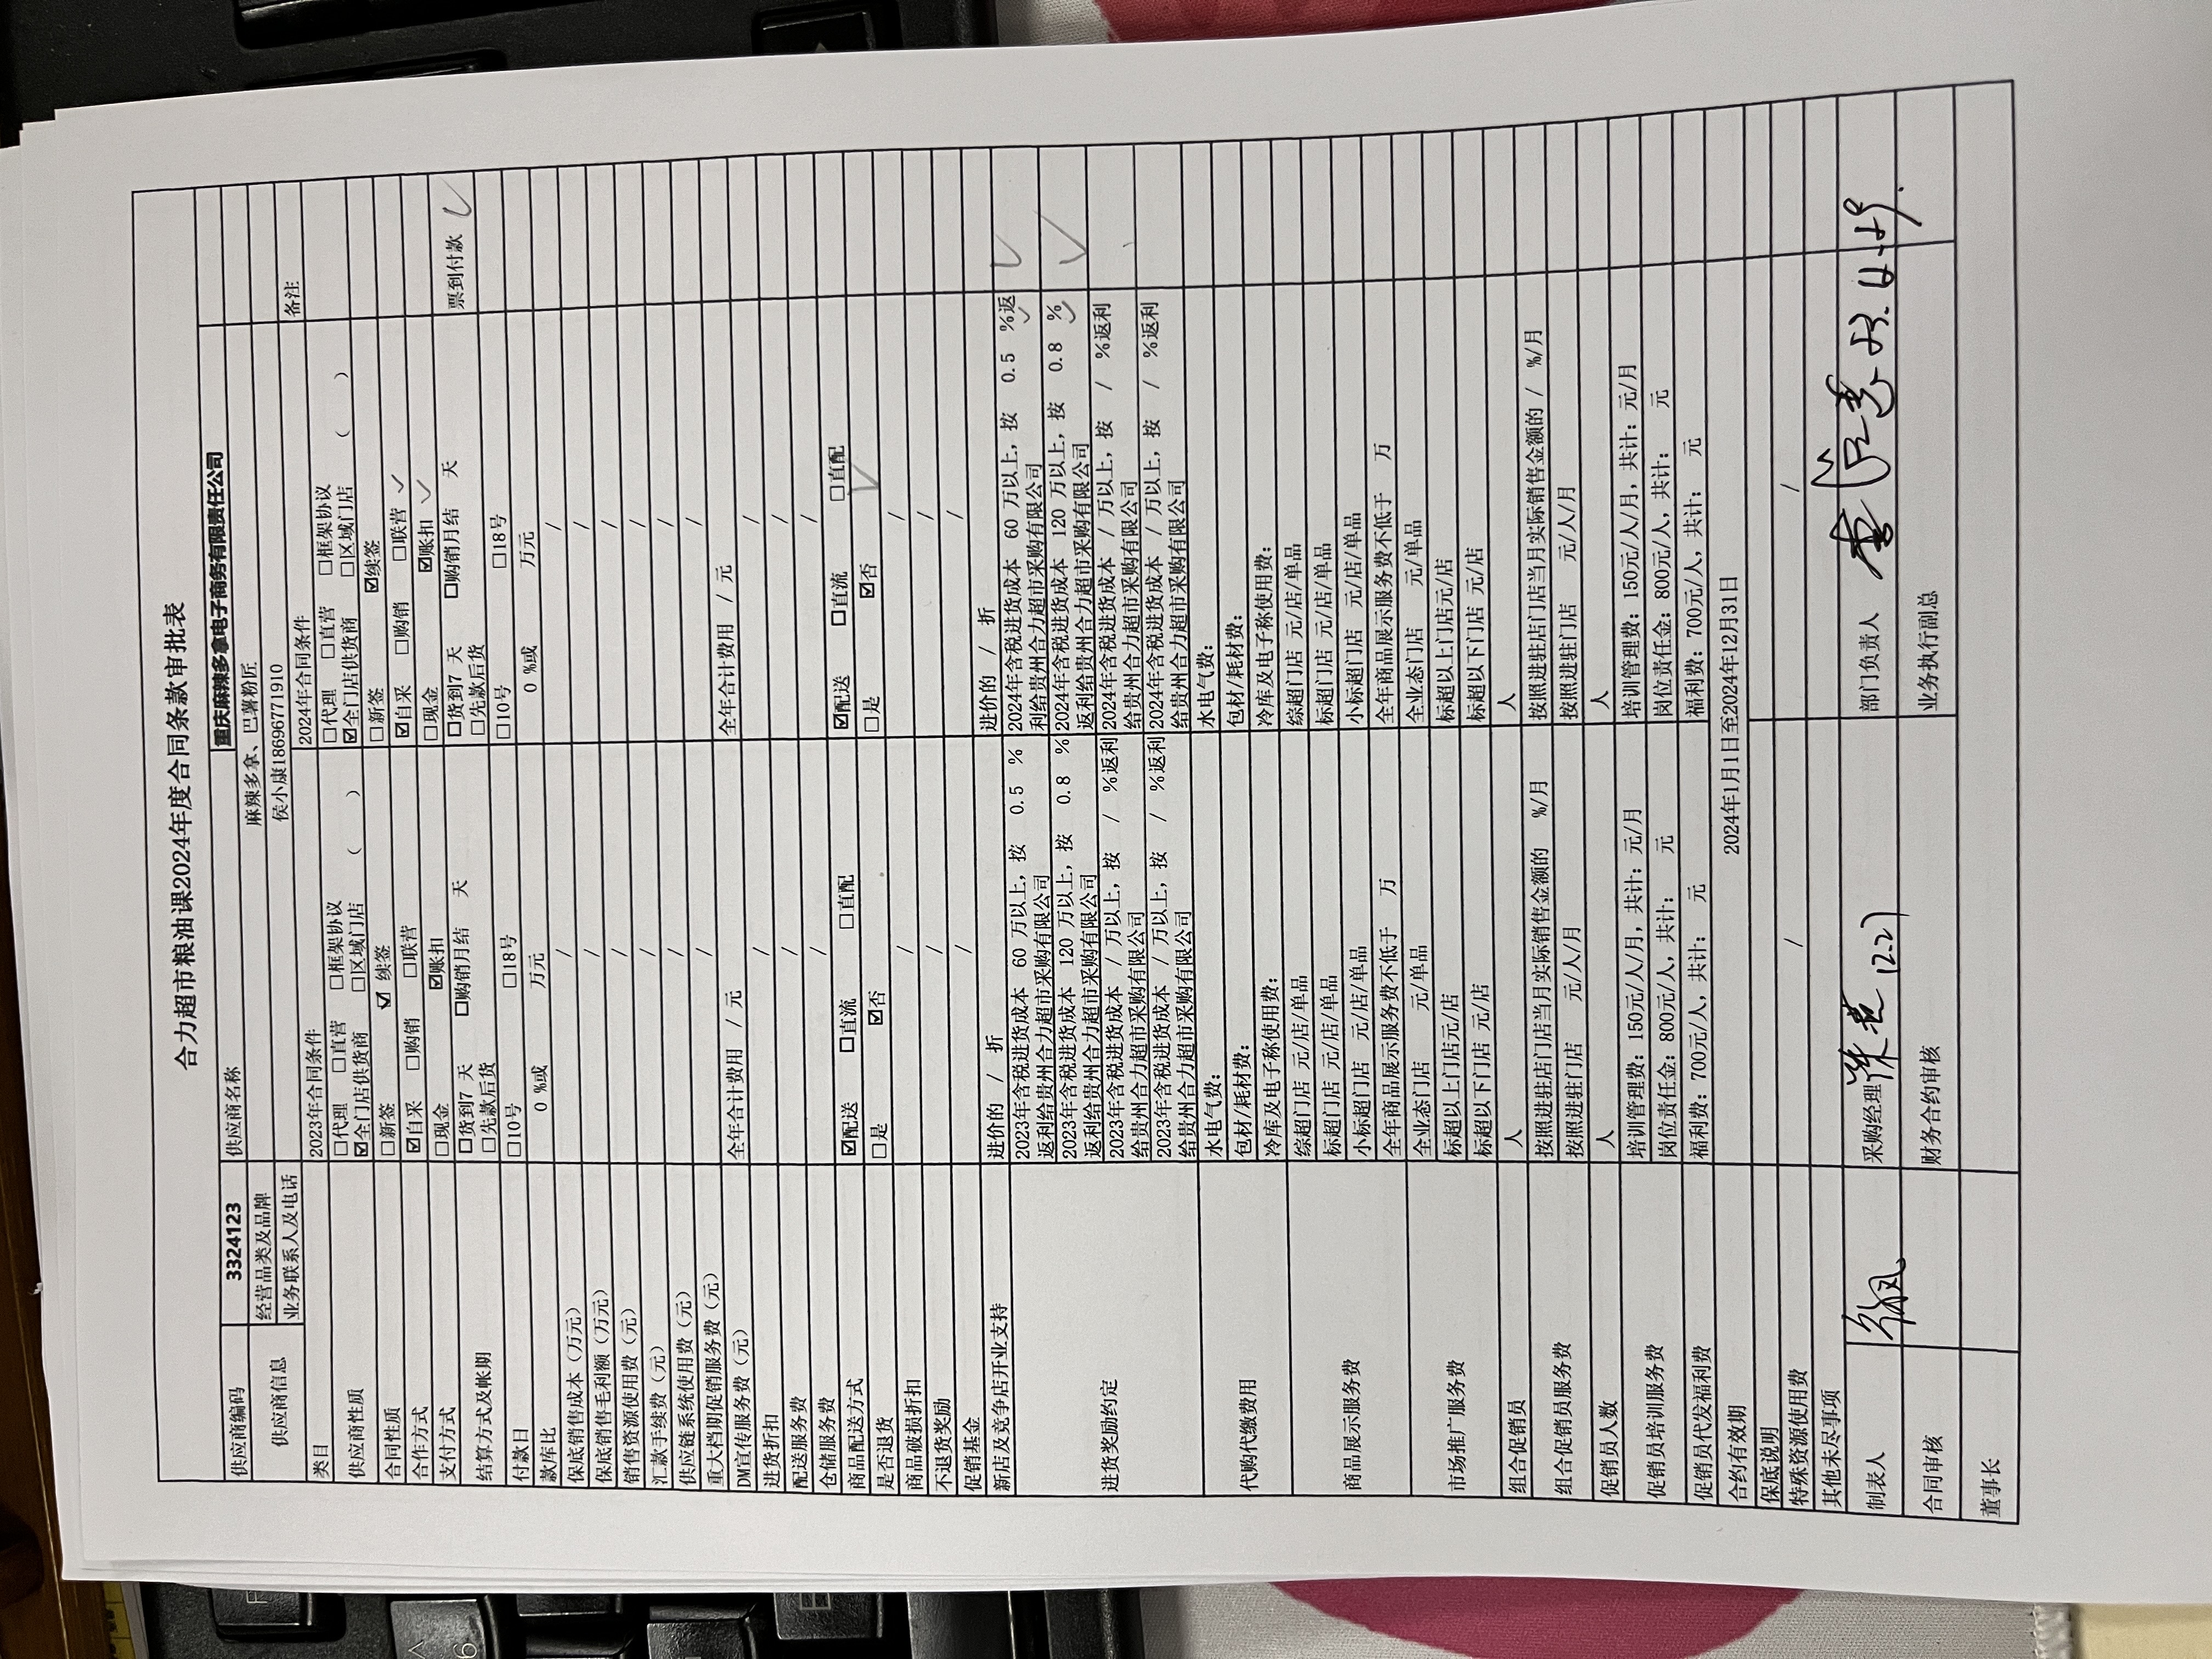 合力超市粮油课2024年度合同条款审批表
供应商编码 3324123 供应商名称 重庆麻辣多拿电子商务有限责任公司
供应商信息 经营品类及品牌 麻辣多拿、巴薯粉匠
业务联系人及电话 侯小康18696771910
类目 2023年合同条件 2024年合同条件 备注
供应商性质 □代理 □直营 □框架协议 □代理 □直营 □框架协议
☑全门店供货商 □区域门店 ( ) ☑全门店供货商 □区域门店 ( )
合同性质 □新签 ☑ 续签 □新签 ☑续签
合作方式 ☑自采 □购销 □联营 ☑自采 □购销 □联营 ✓
支付方式 □现金 ☑账扣 □现金 ☑账扣 ✓
结算方式及帐期 □货到7 天 □购销月结 天 □货到7 天 □购销月结 天 票到付款 ✓
□先款后货 □先款后货
付款日 □10号 □18号 □10号 □18号
款库比 0 %或 万元 0 %或 万元
保底销售成本（万元） / /
保底销售毛利额（万元） / /
销售资源使用费（元） / /
汇款手续费（元） / /
供应链系统使用费（元） / /
重大档期促销服务费（元） / /
DM宣传服务费（元） 全年合计费用 / 元 全年合计费用 / 元
进货折扣 / /
配送服务费 / /
仓储服务费 / /
商品配送方式 ☑配送 □直流 □直配 ☑配送 □直流 □直配
是否退货 □是 ☑否 □是 ☑否 ✓
商品破损折扣 / /
不退货奖励 / /
促销基金 / /
新店及竞争店开业支持 进价的 / 折 进价的 / 折
进货奖励约定 2023年含税进货成本 60 万以上，按 0.5 %
返利给贵州合力超市采购有限公司
2023年含税进货成本 120 万以上，按 0.8 %
返利给贵州合力超市采购有限公司
2023年含税进货成本 / 万以上，按 / %返利
给贵州合力超市采购有限公司
2023年含税进货成本 / 万以上，按 / %返利
给贵州合力超市采购有限公司
2024年含税进货成本 60 万以上，按 0.5 %返
利给贵州合力超市采购有限公司 ✓
2024年含税进货成本 120 万以上，按 0.8 %
返利给贵州合力超市采购有限公司 ✓
2024年含税进货成本 / 万以上，按 / %返利
给贵州合力超市采购有限公司
2024年含税进货成本 / 万以上，按 / %返利
给贵州合力超市采购有限公司
代购代缴费用 水电气费： 水电气费：
包材/耗材费： 包材/耗材费：
冷库及电子称使用费： 冷库及电子称使用费：
商品展示服务费 综超门店 元/店/单品 综超门店 元/店/单品
标超门店 元/店/单品 标超门店 元/店/单品
小标超门店 元/店/单品 小标超门店 元/店/单品
全年商品展示服务费不低于 万 全年商品展示服务费不低于 万
市场推广服务费 全业态门店 元/单品 全业态门店 元/单品
标超以上门店元/店 标超以上门店元/店
标超以下门店 元/店 标超以下门店 元/店
组合促销员 人 人
组合促销员服务费 按照进驻店门店当月实际销售金额的 %/月 按照进驻店门店当月实际销售金额的 / %/月
按照进驻门店 元/人/月 按照进驻门店 元/人/月
促销员人数 人 人
促销员培训服务费 培训管理费：150元/人/月，共计： 元/月 培训管理费：150元/人/月，共计： 元/月
岗位责任金：800元/人，共计： 元 岗位责任金：800元/人，共计： 元
促销员代发福利费 福利费：700元/人，共计： 元 福利费：700元/人，共计： 元
合约有效期 2024年1月1日至2024年12月31日
保底说明
特殊资源使用费 / /
其他未尽事项
制表人 采购经理 12.27 部门负责人
合同审核 财务合约审核 业务执行副总
董事长